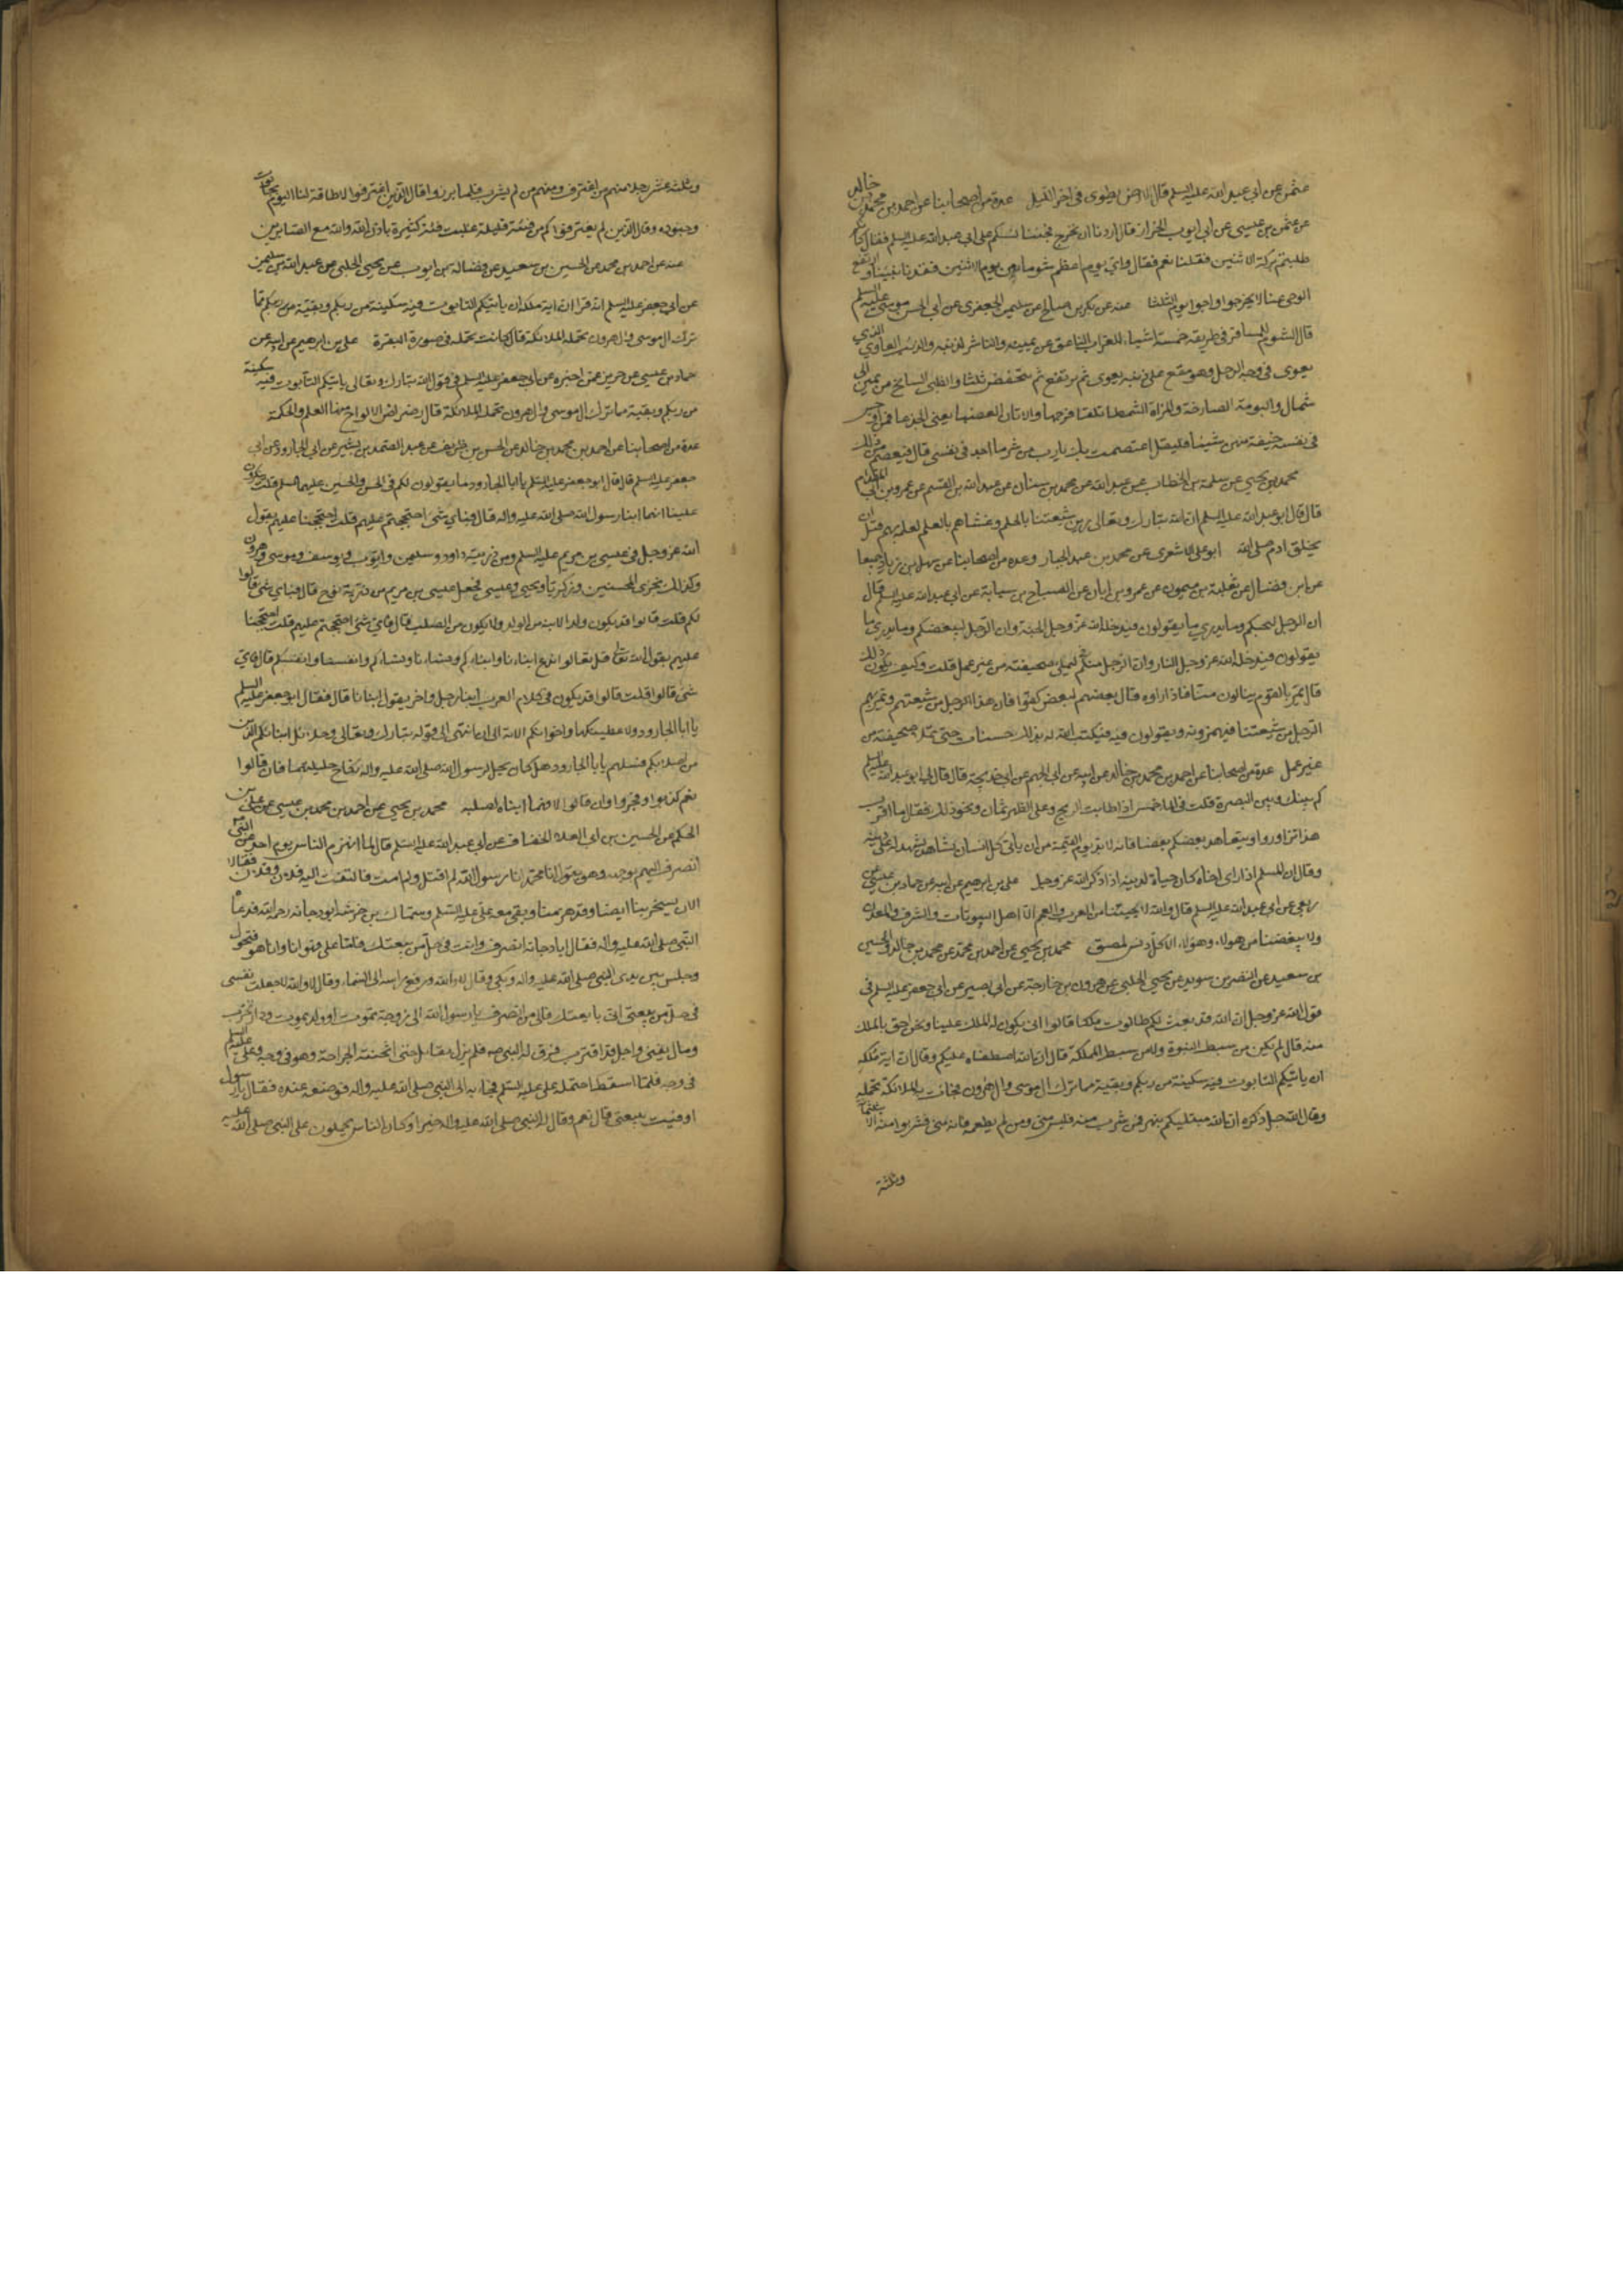 عثمن عن ابي عبد الله عليه السلم قال الارض يطوى في اخر الليل عدة من اصحابنا عن احمد بن محمد بن خالد
عن عثمن بن عيسى عن ابي ايوب الخزاز قال اردنا ان نخرج فجئنا نسلم على ابي عبد الله عليه السلم فقال كانكم
طلبتم بركة الاثنين فقلنا نعم فقال واي يوم اعظم شوما من يوم الاثنين فقدنا نبينا وارتفع
الوحي عنا لا يخرجوا واخرجوا يوم الثلثا عنه عن بكر بن صالح عن سليمن الجعفري عن ابي الحسن موسى عليه السلم
قال الشوم للمسافر في طريقه خمسة اشياء الغراب الناعق عن يمينه والناشر لذنبه والذئب العاوي الذي
يعوى في وجه الرجل وهو مقع على ذنبه يعوى ثم يرتفع ثم ينخفض ثلثا والظبي السانح من يمين الى
شمال والبومة الصارخة والمراة الشمطا تلقا فرجها والاتان العضبا يعني الجدعا فمن اوجس
في نفسه خيفة منهن شيئا فليقل اعتصمت بك يا رب من شر ما اجد في نفسي قال فيعصم من ذلك
محمد بن يحيى عن سلمة بن الخطاب عن عبد الله عن محمد بن سنان عن عبد الله بن القسم عن عمرو بن ابي المقدام
قال قال ابو عبد الله عليه السلم ان الله تبارك وتعالى زين شيعتنا بالحلم وغشاهم بالعلم لعلمه بهم قبل ان
يخلق ادم صلى الله ابو علي الاشعري عن محمد بن عبد الجبار وعدة من اصحابنا عن سهل بن زياد جميعا
عن ابن فضال عن ثعلبة بن ميمون عن عمرو بن ابان عن الصباح بن سيابة عن ابي عبد الله عليه السلم قال
ان الرجل ليحبكم وما يدري ما يقولون فيدخله الله عز وجل الجنة وان الرجل ليبغضكم وما يدري ما
يقولون فيدخله الله عز وجل النار وان الرجل منكم ليملى صحيفته من غير عمل قلت وكيف يكون ذلك
قال يمر بالقوم ينالون منا فاذا راوه قال بعضهم لبعض كفوا فان هذا الرجل من شيعتهم ويمر بهم
الرجل من شيعتنا فيهمزونه ويقولون فيه فيكتب الله له بذلك حسنات حتى يملا صحيفته من
غير عمل عدة من اصحابنا عن احمد بن محمد بن خالد عن ابيه عن ابي الجهم عن ابي خديجة قال قال لي ابو عبد الله عليه السلم
كم بينك وبين البصرة قلت في الما خمس اذا طابت الريح وعلى الظهر ثمان ونحو ذلك فقال ما اقرب
هذا تزاوروا ويتعاهد بعضكم بعضا فانه لا بد يوم القيمة من ان ياتي كل انسان بشاهد يشهد له على دينه
وقال ان المسلم اذا راى اخاه كان حياة لدينه اذا ذكر الله عز وجل علي بن ابرهيم عن ابيه عن حماد بن عيسى عن
ربعي عن ابي عبد الله عليه السلم قال والله لا يحبنا من العرب والعجم الا اهل البيوتات والشرف والمعدن
ولا يبغضنا من هولاء وهولاء الا كل دنس ملصق محمد بن يحيى عن احمد بن محمد عن محمد بن خالد والحسين
بن سعيد عن النضر بن سويد عن يحيى الحلبي عن هرون بن خارجة عن ابي بصير عن ابي جعفر عليه السلم في
قول الله عز وجل ان الله قد بعث لكم طالوت ملكا قالوا انى يكون له الملك علينا ونحن احق بالملك
منه قال لم يكن من سبط النبوة ولا من سبط المملكة قال ان الله اصطفاه عليكم وقال ان اية ملكه
ان ياتيكم التابوت فيه سكينة من ربكم وبقية مما ترك ال موسى وال هرون فجاءت به الملائكة تحمله
وقال الله جل ذكره ان الله مبتليكم بنهر فمن شرب منه فليس مني ومن لم يطعمه فانه مني فشربوا منه الا ثلثمائة
وثلثة
وثلثة عشر رجلا منهم من اغترف ومنهم من لم يشرب فلما برزوا قال الذين اغترفوا لا طاقة لنا اليوم بجالوت
وجنوده وقال الذين لم يغترفوا كم من فئة قليلة غلبت فئة كثيرة باذن الله والله مع الصابرين
عنه عن احمد بن محمد عن الحسين بن سعيد عن فضالة بن ايوب عن يحيى الحلبي عن عبد الله بن سليمن
عن ابي جعفر عليه السلم انه قرا ان اية ملكه ان ياتيكم التابوت فيه سكينة من ربكم وبقية مما
ترك ال موسى وال هرون تحمله الملائكة قال كانت تحمله في صورة البقرة علي بن ابرهيم عن ابيه عن
حماد بن عيسى عن حريز عمن اخبره عن ابي جعفر عليه السلم في قول الله تبارك وتعالى ياتيكم التابوت فيه سكينة
من ربكم وبقية مما ترك ال موسى وال هرون تحمله الملائكة قال رضراض الالواح فيها العلم والحكمة
عدة من اصحابنا عن احمد بن محمد بن خالد عن الحسن بن ظريف عن عبد الصمد بن بشير عن ابي الجارود عن ابي
جعفر عليه السلم قال قال ابو جعفر عليه السلم يا ابا الجارود ما يقولون لكم في الحسن والحسين عليهما السلم قلت ينكرون
علينا انهما ابنا رسول الله صلى الله عليه واله قال فباي شئ احتججتم عليهم قلت احتججنا عليهم بقول
الله عز وجل في عيسى بن مريم عليه السلم ومن ذريته داود وسليمن وايوب ويوسف وموسى وهرون
وكذلك نجزى المحسنين وزكريا ويحيى وعيسى فجعل عيسى بن مريم من ذرية نوح قال فباي شئ قالوا
لكم قلت قالوا قد يكون ولد الابنة من الولد ولا يكون من الصلب قال فاي شئ احتججتم عليهم قلت احتججنا
عليهم بقول الله تعالى قل تعالوا ندع ابناءنا وابناءكم ونساءنا ونساءكم وانفسنا وانفسكم قال فاي
شئ قالوا قلت قالوا قد يكون في كلام العرب ابناء رجل واخر يقول ابنانا قال فقال ابو جعفر عليه السلم
يا ابا الجارود
من اصلابكم فسلهم يا ابا الجارود هل كان يحل لرسول الله صلى الله عليه واله نكاح حليلتهما فان قالوا
نعم كذبوا وفجروا وان قالوا لا فهما ابناه لصلبه محمد بن يحيى عن احمد بن محمد بن عيسى عن علي بن
الحكم عن الحسين بن ابي العلاء الخفاف عن ابي عبد الله عليه السلم قال لما انهزم الناس يوم احد عن النبي
انصرف اليهم بوجهه وهو يقول انا محمد انا رسول الله لم اقتل ولم امت فالتفت اليه فلان وفلان فقالا
الان يسخر بنا ايضا وقد هزمنا وبقي معه علي عليه السلم وسماك بن خرشة ابو دجانة رحمه الله فدعاه
النبي صلى الله عليه واله فقال يا ابا دجانة انصرف وانت في حل من بيعتك فاما علي فهو انا وانا هو فتحول
وجلس بين يدى النبي صلى الله عليه واله وبكى وقال لا والله ورفع راسه الى السماء وقال لا والله لا جعلت نفسي
في حل من بيعتي اني بايعتك فالى من انصرف يا رسول الله الى زوجة تموت او ولد يموت او دار تخرب
ومال يفنى واجل قد اقترب فرق له النبي صلى فلم يزل يقاتل حتى اثخنته الجراحة وهو في وجه وعلي عليه السلم
في وجه فلما اسقط احتمله علي عليه السلم فجاء به الى النبي صلى الله عليه واله فوضعه عنده فقال يا رسول
اوفيت ببيعتي قال نعم وقال له النبي صلى الله عليه واله خيرا وكان الناس يحملون على النبي صلى الله عليه